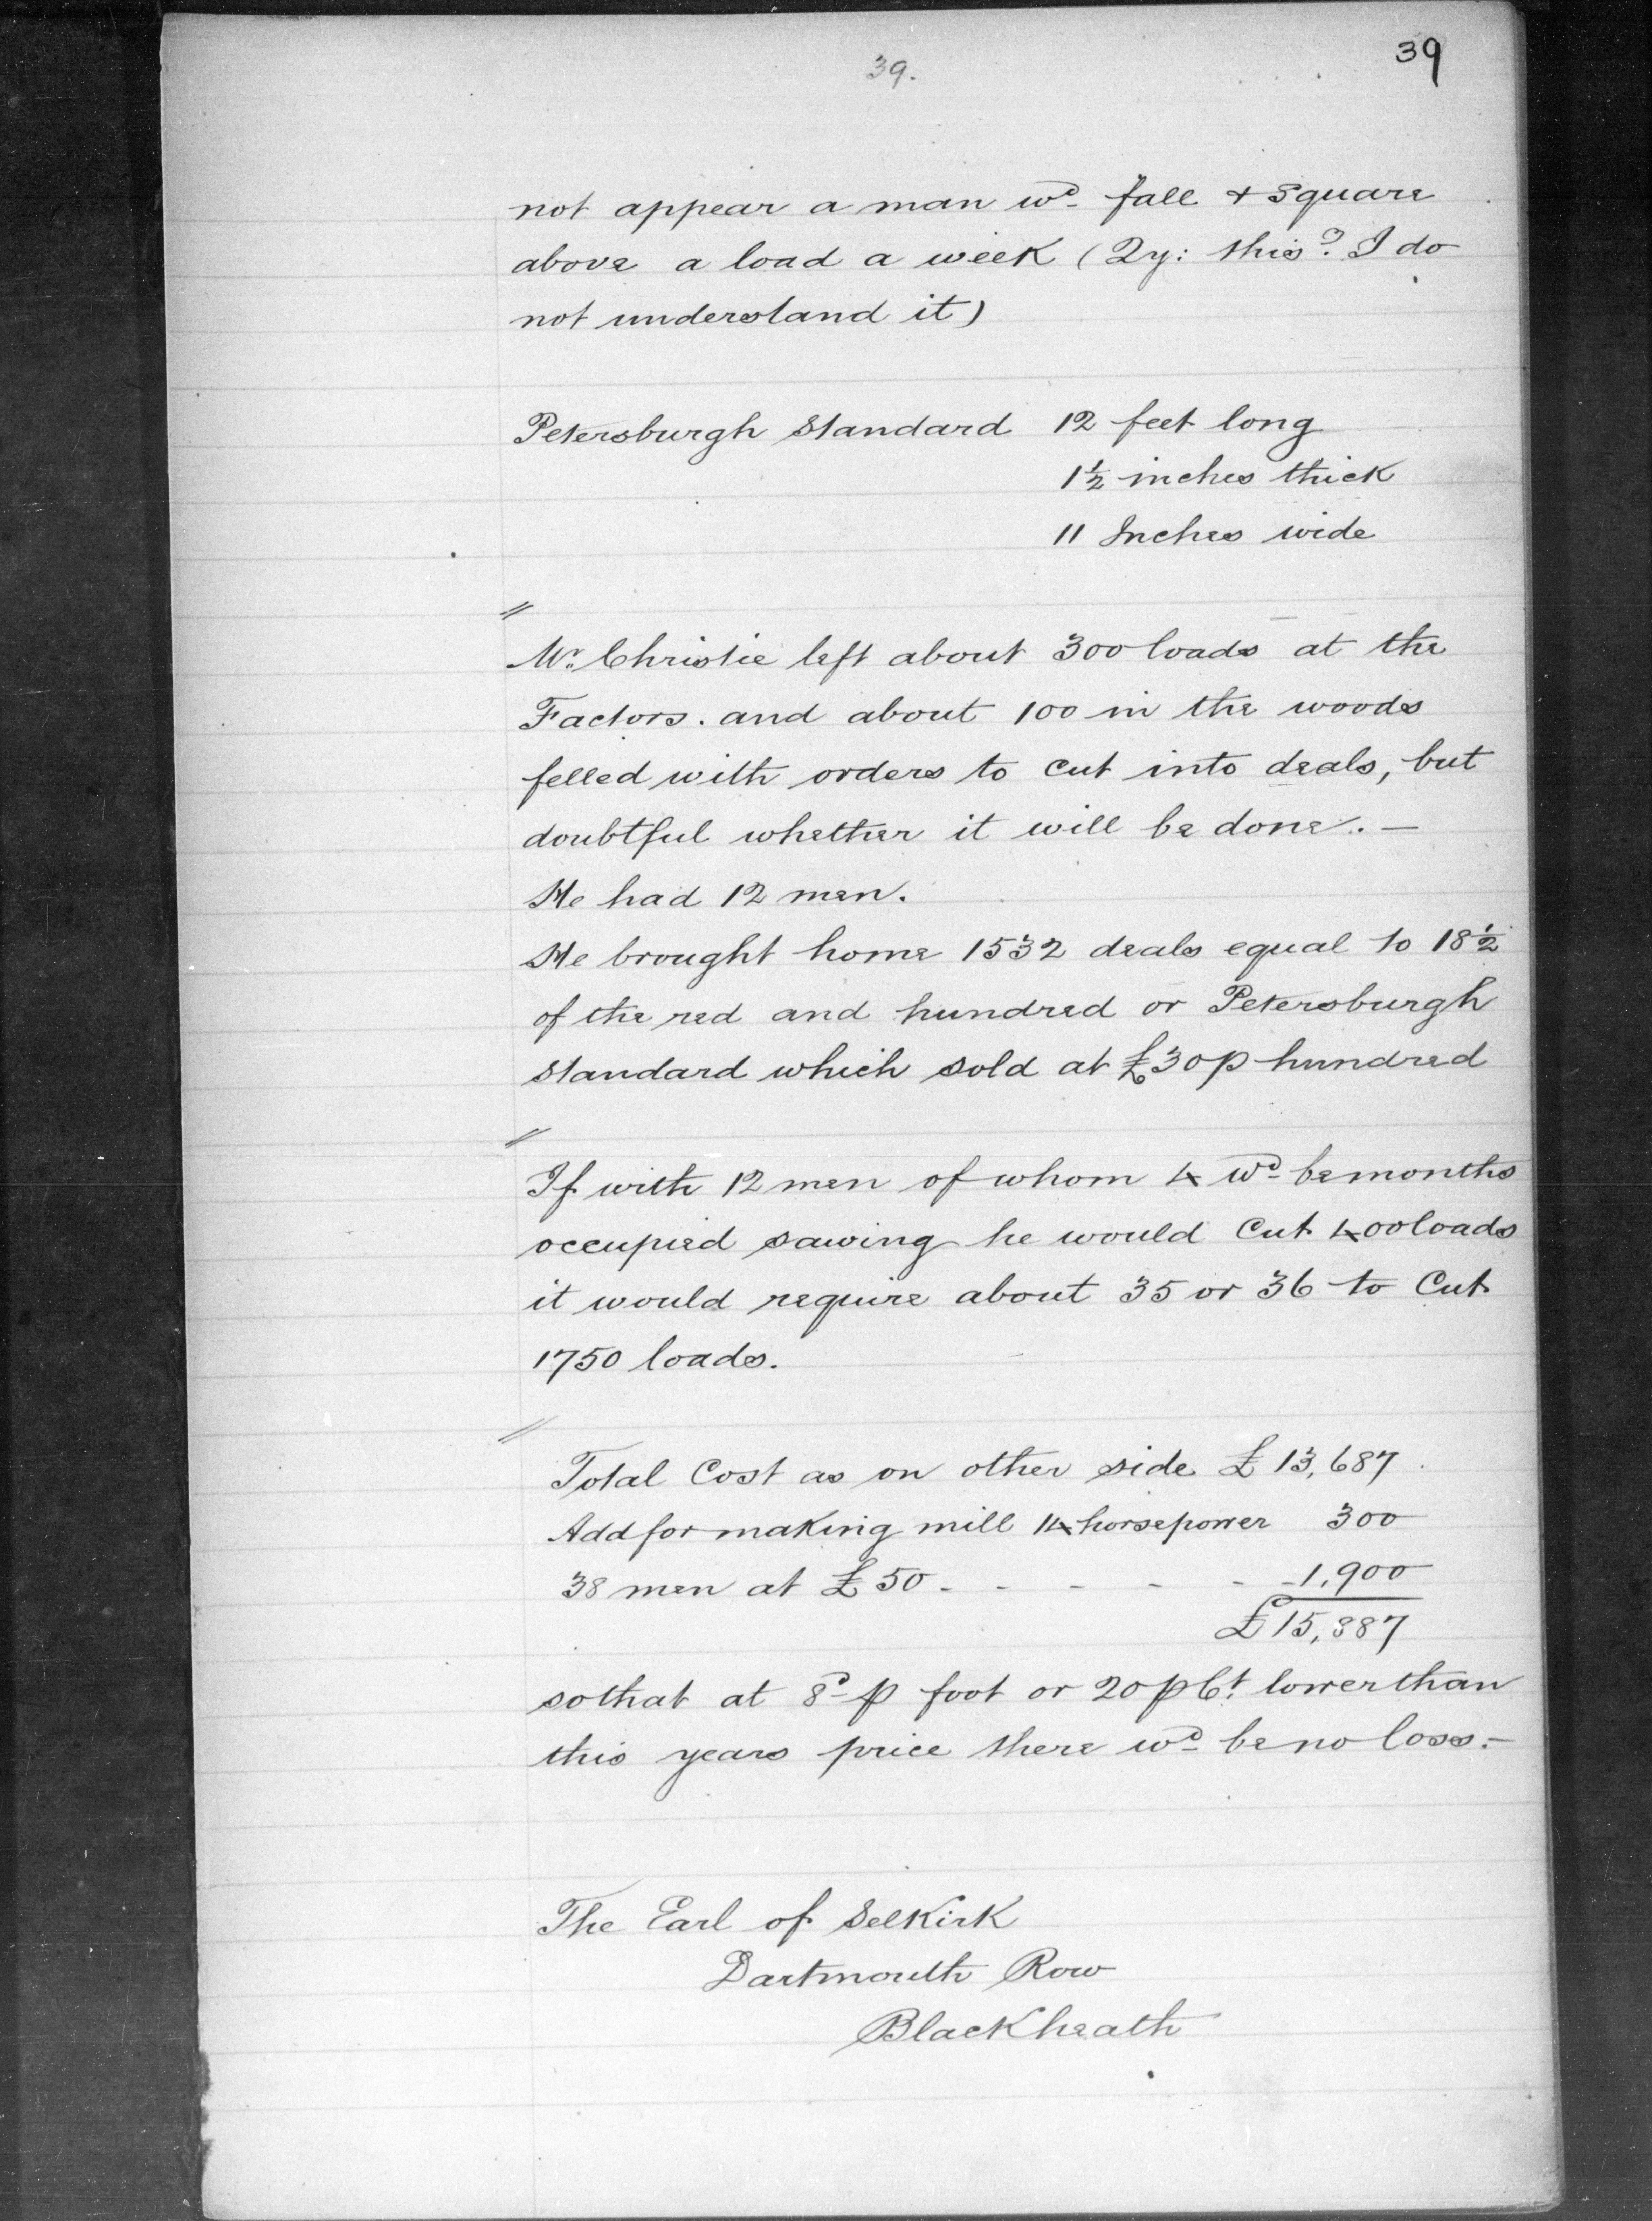 39
39.
not appear a man wd fall & Square
above a load a week (Qy: this? I do
not understand it)
Petersburgh Standard 12 feet long
1½ inches thick
11 Inches wide
//
Mr. Christie left about 300 loads at the
Factors. and about 100 in the woods
felled with orders to cut into deals, but
doubtful whether it will be done. —
He had 12 men.
He brought home 1532 deals equal to 18½
of the red and hundred or Petersburgh
Standard which sold at £30 p hundred
//
If with 12 men of whom 4 wd be months
occupied sawing he would Cut 400 loads
it would require about 35 or 36 to Cut
1750 loads.
//
Total Cost as on other side £13,687
Add for making mill 14 horsepower 300
38 men at £50 - - - - - 1,900
£15,887
so that at 8d p foot or 20 p Ct. lower than
this years price there wd be no loss. —
The Earl of Selkirk
Dartmouth Row
Blackheath